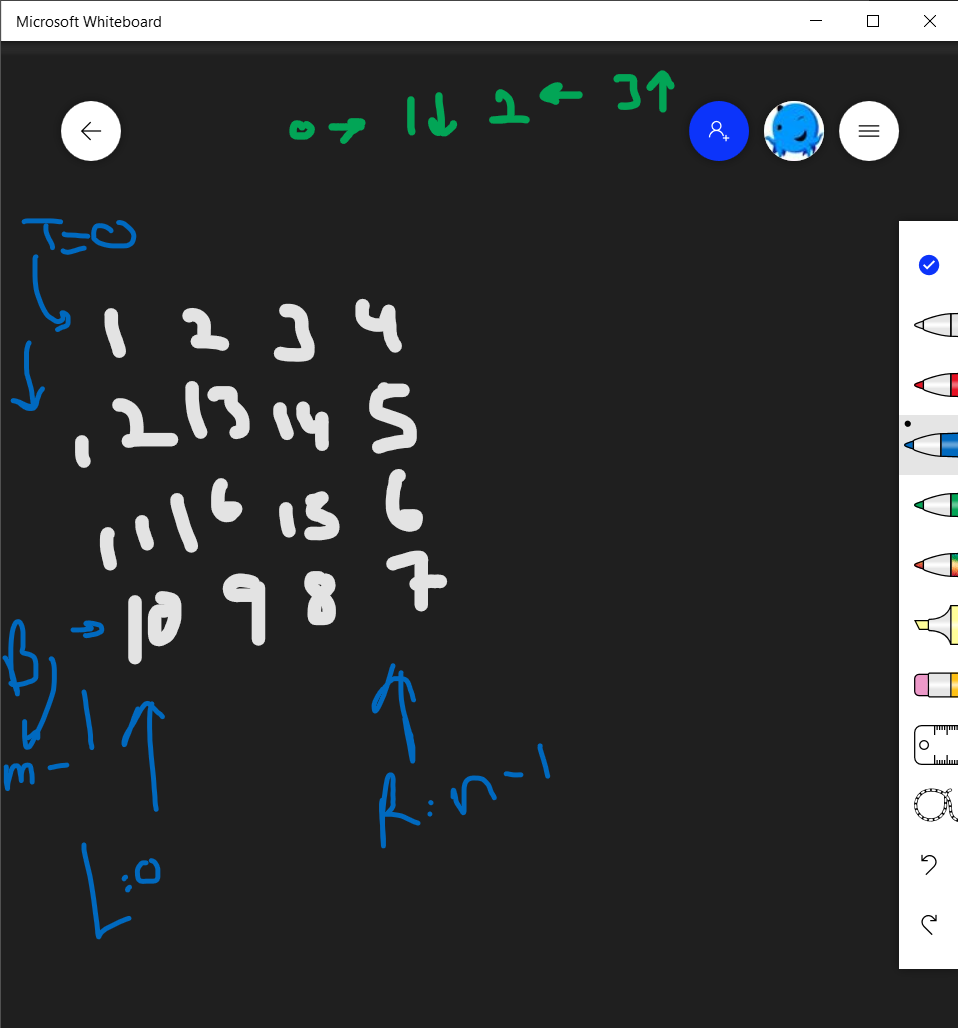 Microsoft Whiteboard
0 → 1↓ 2 ← 3↑
T=0
1 2 3 4
12 13 14 5
11 16 15 6
10 9 8 7
B →
m-1
R:n-1
L:0